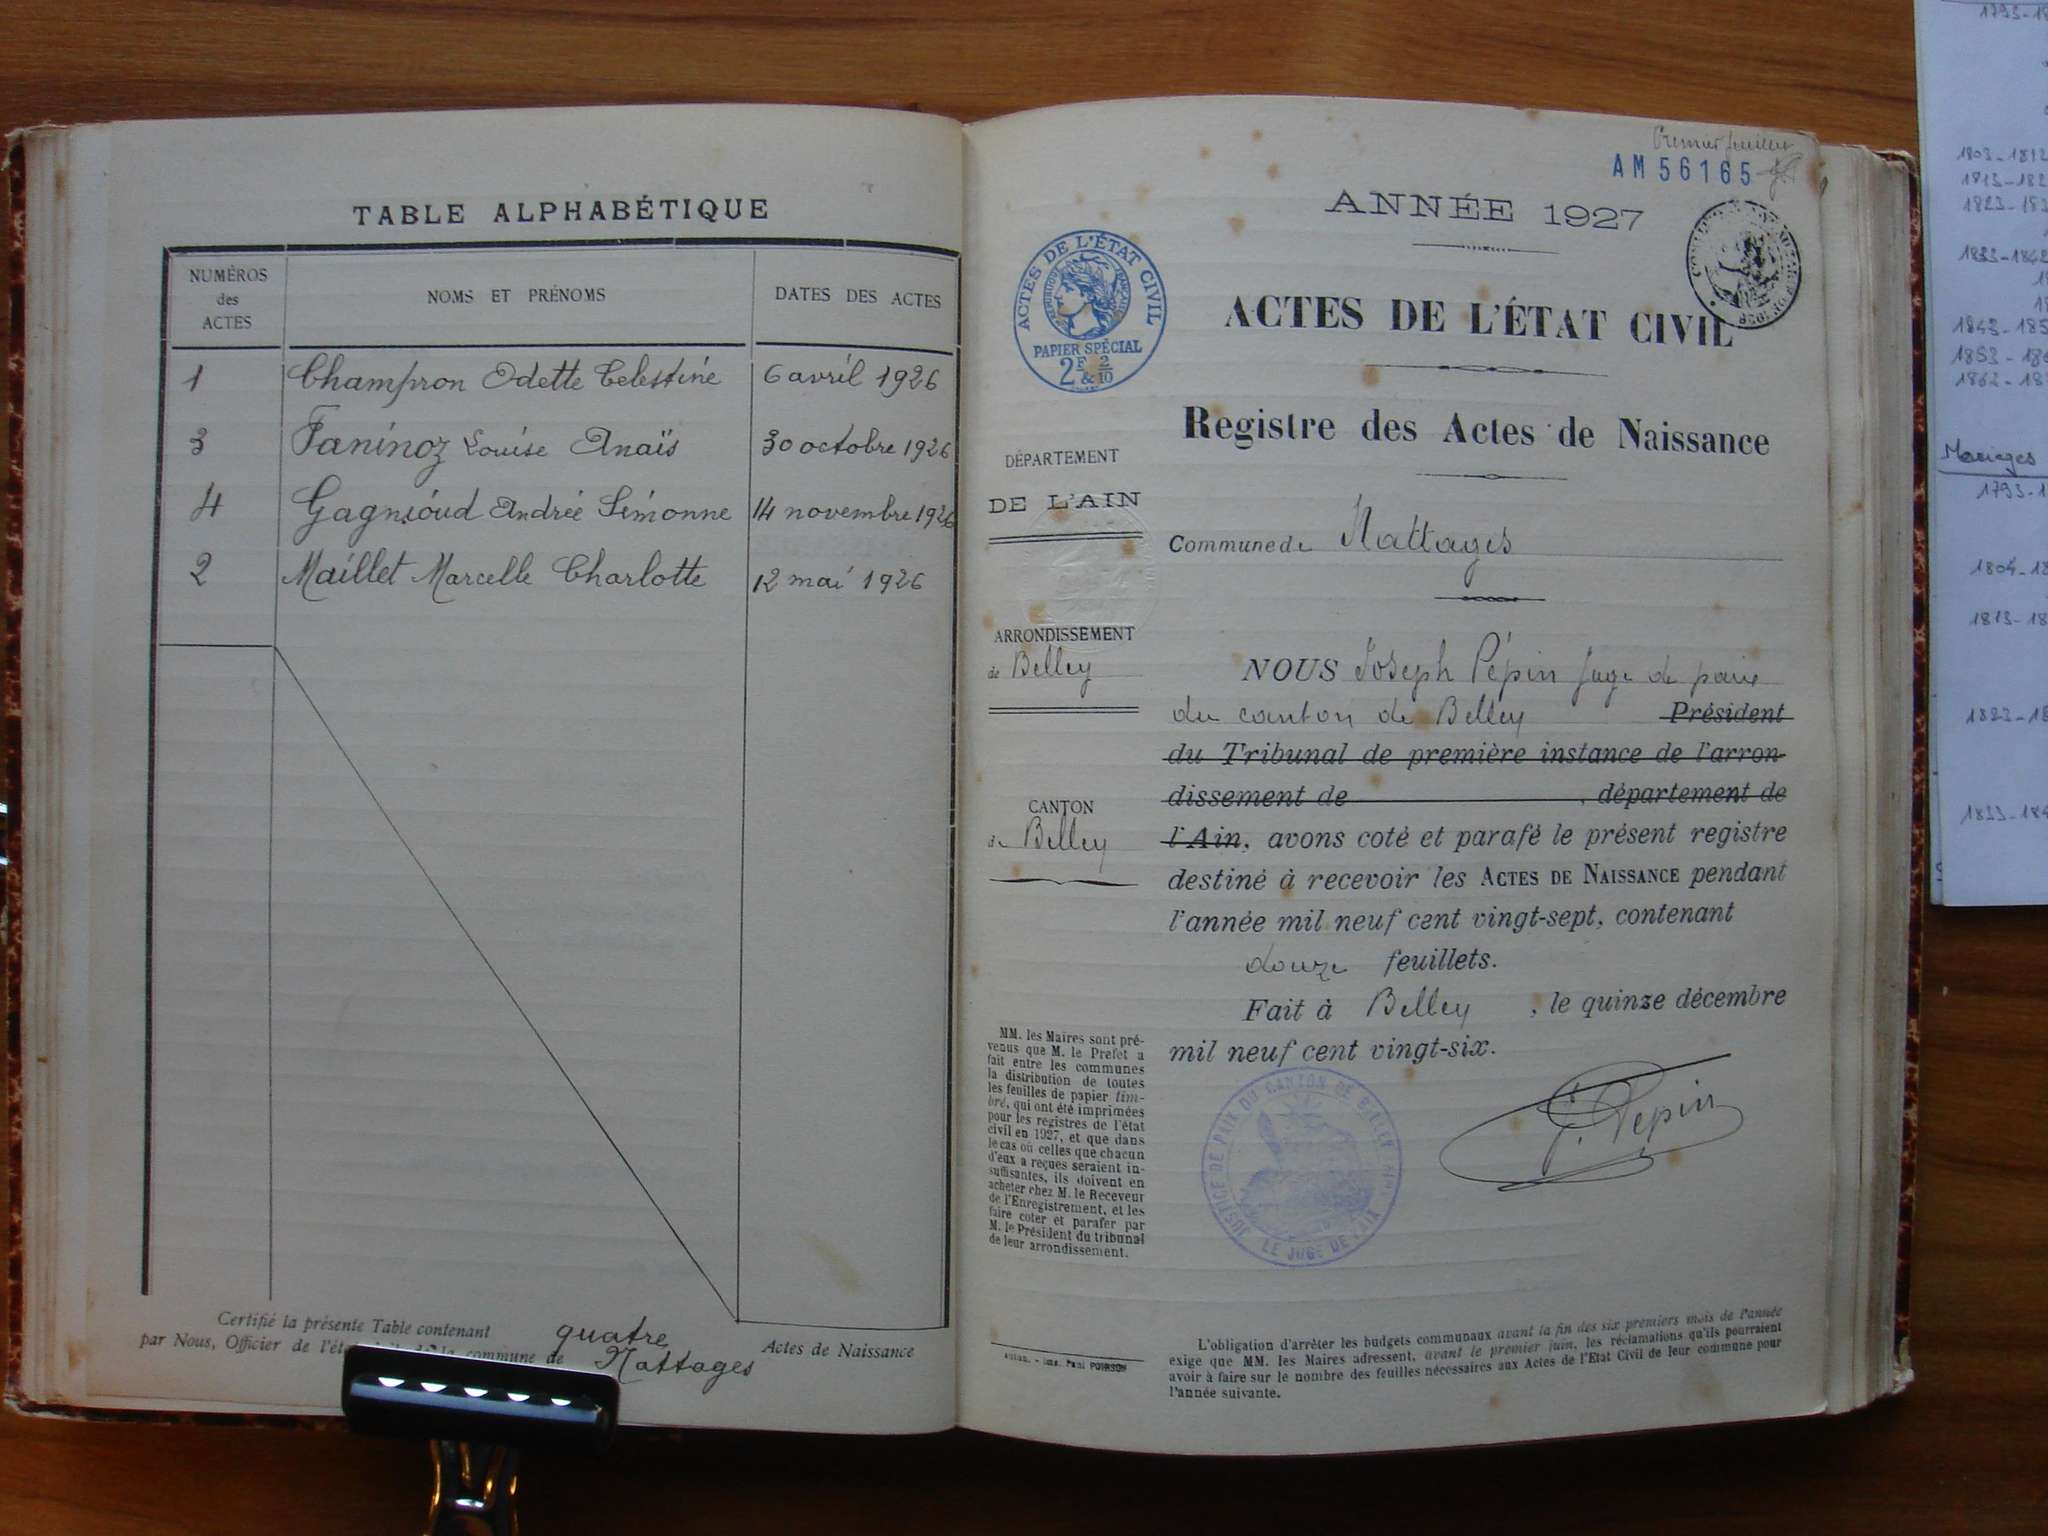 TABLE ALPHABÉTIQUE
NUMÉROS des ACTES
NOMS ET PRÉNOMS
DATES DES ACTES
1 Champron Odette Celestine 6 avril 1926
3 Faninoz Louise Anaïs 30 octobre 1926
4 Gagnioud Andrée Simonne 14 novembre 1926
2 Maillet Marcelle Charlotte 12 mai 1926
Certifié la présente Table contenant quatre Actes de Naissance
par Nous, Officier de l'état de la commune de Nattages
Premier feuillet
AM 56165
ANNÉE 1927
ACTES DE L'ÉTAT CIVIL
RÉPUBLIQUE FRANÇAISE
PAPIER SPÉCIAL
2F & 2/10
ACTES DE L'ÉTAT CIVIL
Registre des Actes de Naissance
DÉPARTEMENT
DE L'AIN
Commune de Nattages
ARRONDISSEMENT
de Belley
CANTON
de Belley
NOUS Joseph Pépin juge de paix
du canton de Belley Président
du Tribunal de première instance de l'arron-
dissement de , département de
l'Ain, avons coté et parafé le présent registre
destiné à recevoir les ACTES DE NAISSANCE pendant
l'année mil neuf cent vingt-sept, contenant
douze feuillets.
Fait à Belley , le quinze décembre
mil neuf cent vingt-six.
J. Pepin
JUSTICE DE PAIX DU CANTON DE BELLEY
LE JUGE DE PAIX
MM. les Maires sont pré-
venus que M. le Préfet a
fait entre les communes
la distribution de toutes
les feuilles de papier tim-
bré, qui ont été imprimées
pour les registres de l'état
civil en 1927, et que dans
le cas où celles que chacun
d'eux a reçues seraient in-
suffisantes, ils doivent en
acheter chez M. le Receveur
de l'Enregistrement, et les
faire coter et parafer par
M. le Président du tribunal
de leur arrondissement.
Imp. Paul POIRSON
L'obligation d'arrêter les budgets communaux avant la fin des six premiers mois de l'année
exige que MM. les Maires adressent, avant le premier juin, les réclamations qu'ils pourraient
avoir à faire sur le nombre des feuilles nécessaires aux Actes de l'Etat Civil de leur commune pour
l'année suivante.
1793-18
1803-1812
1813-182
1823-183
1833-1842
1843-185
1853-186
1862-18
Mariages
1793-1
1804-18
1813-18
1823-18
1833-184